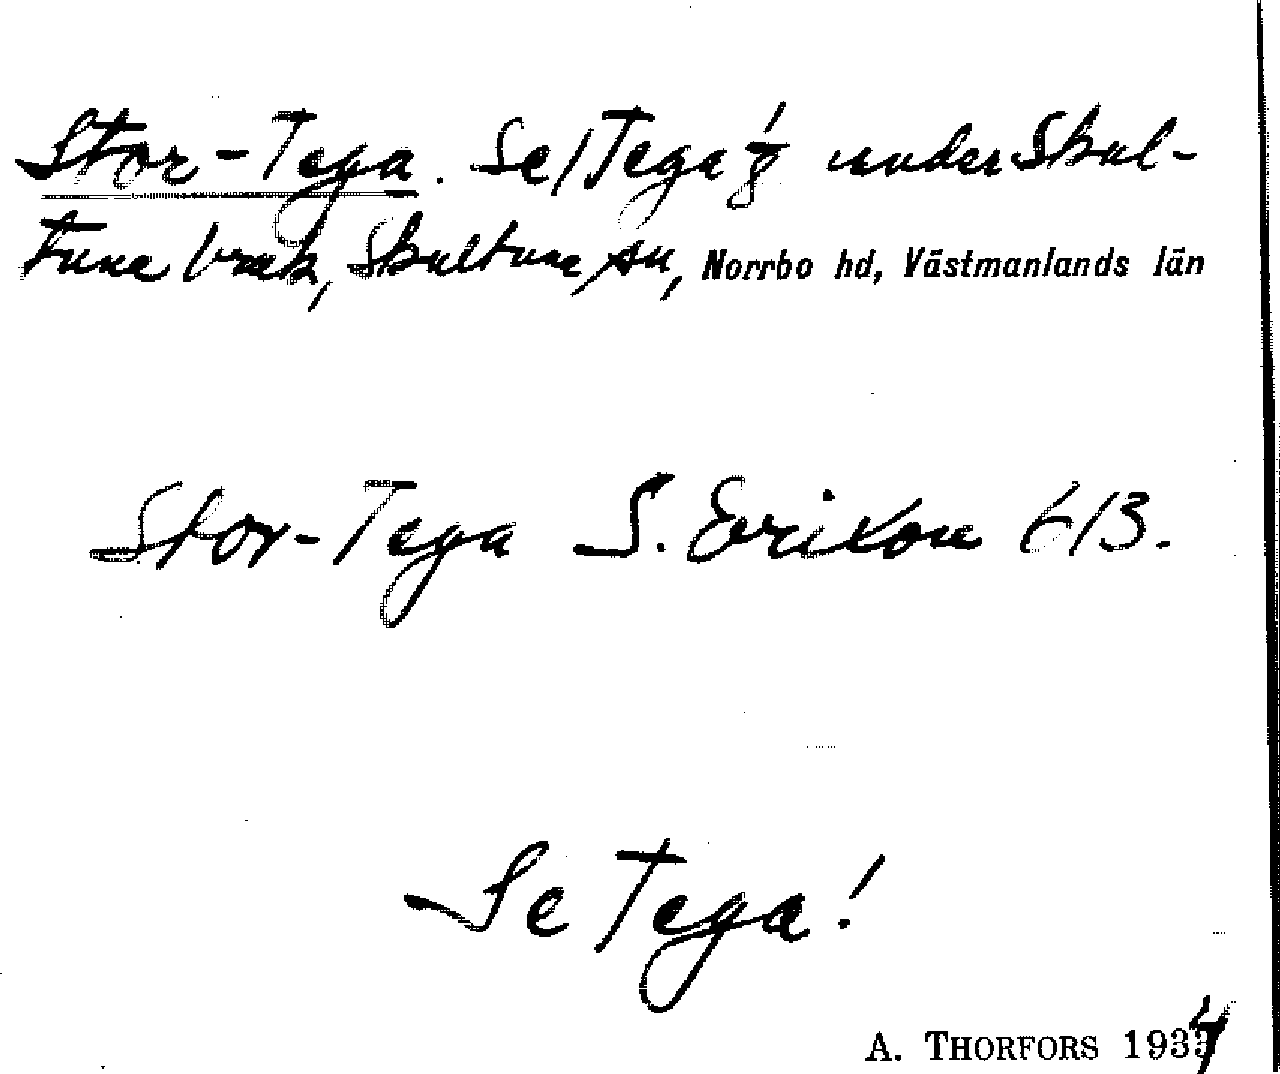 Stor-Tega. Se/Tega 1/8 under Skul-
tuna bruk, Skultuna sn, Norrbo hd, Västmanlands län
Stor-Tega S. Erixon 613.
Se Tega!
A. THORFORS 1934